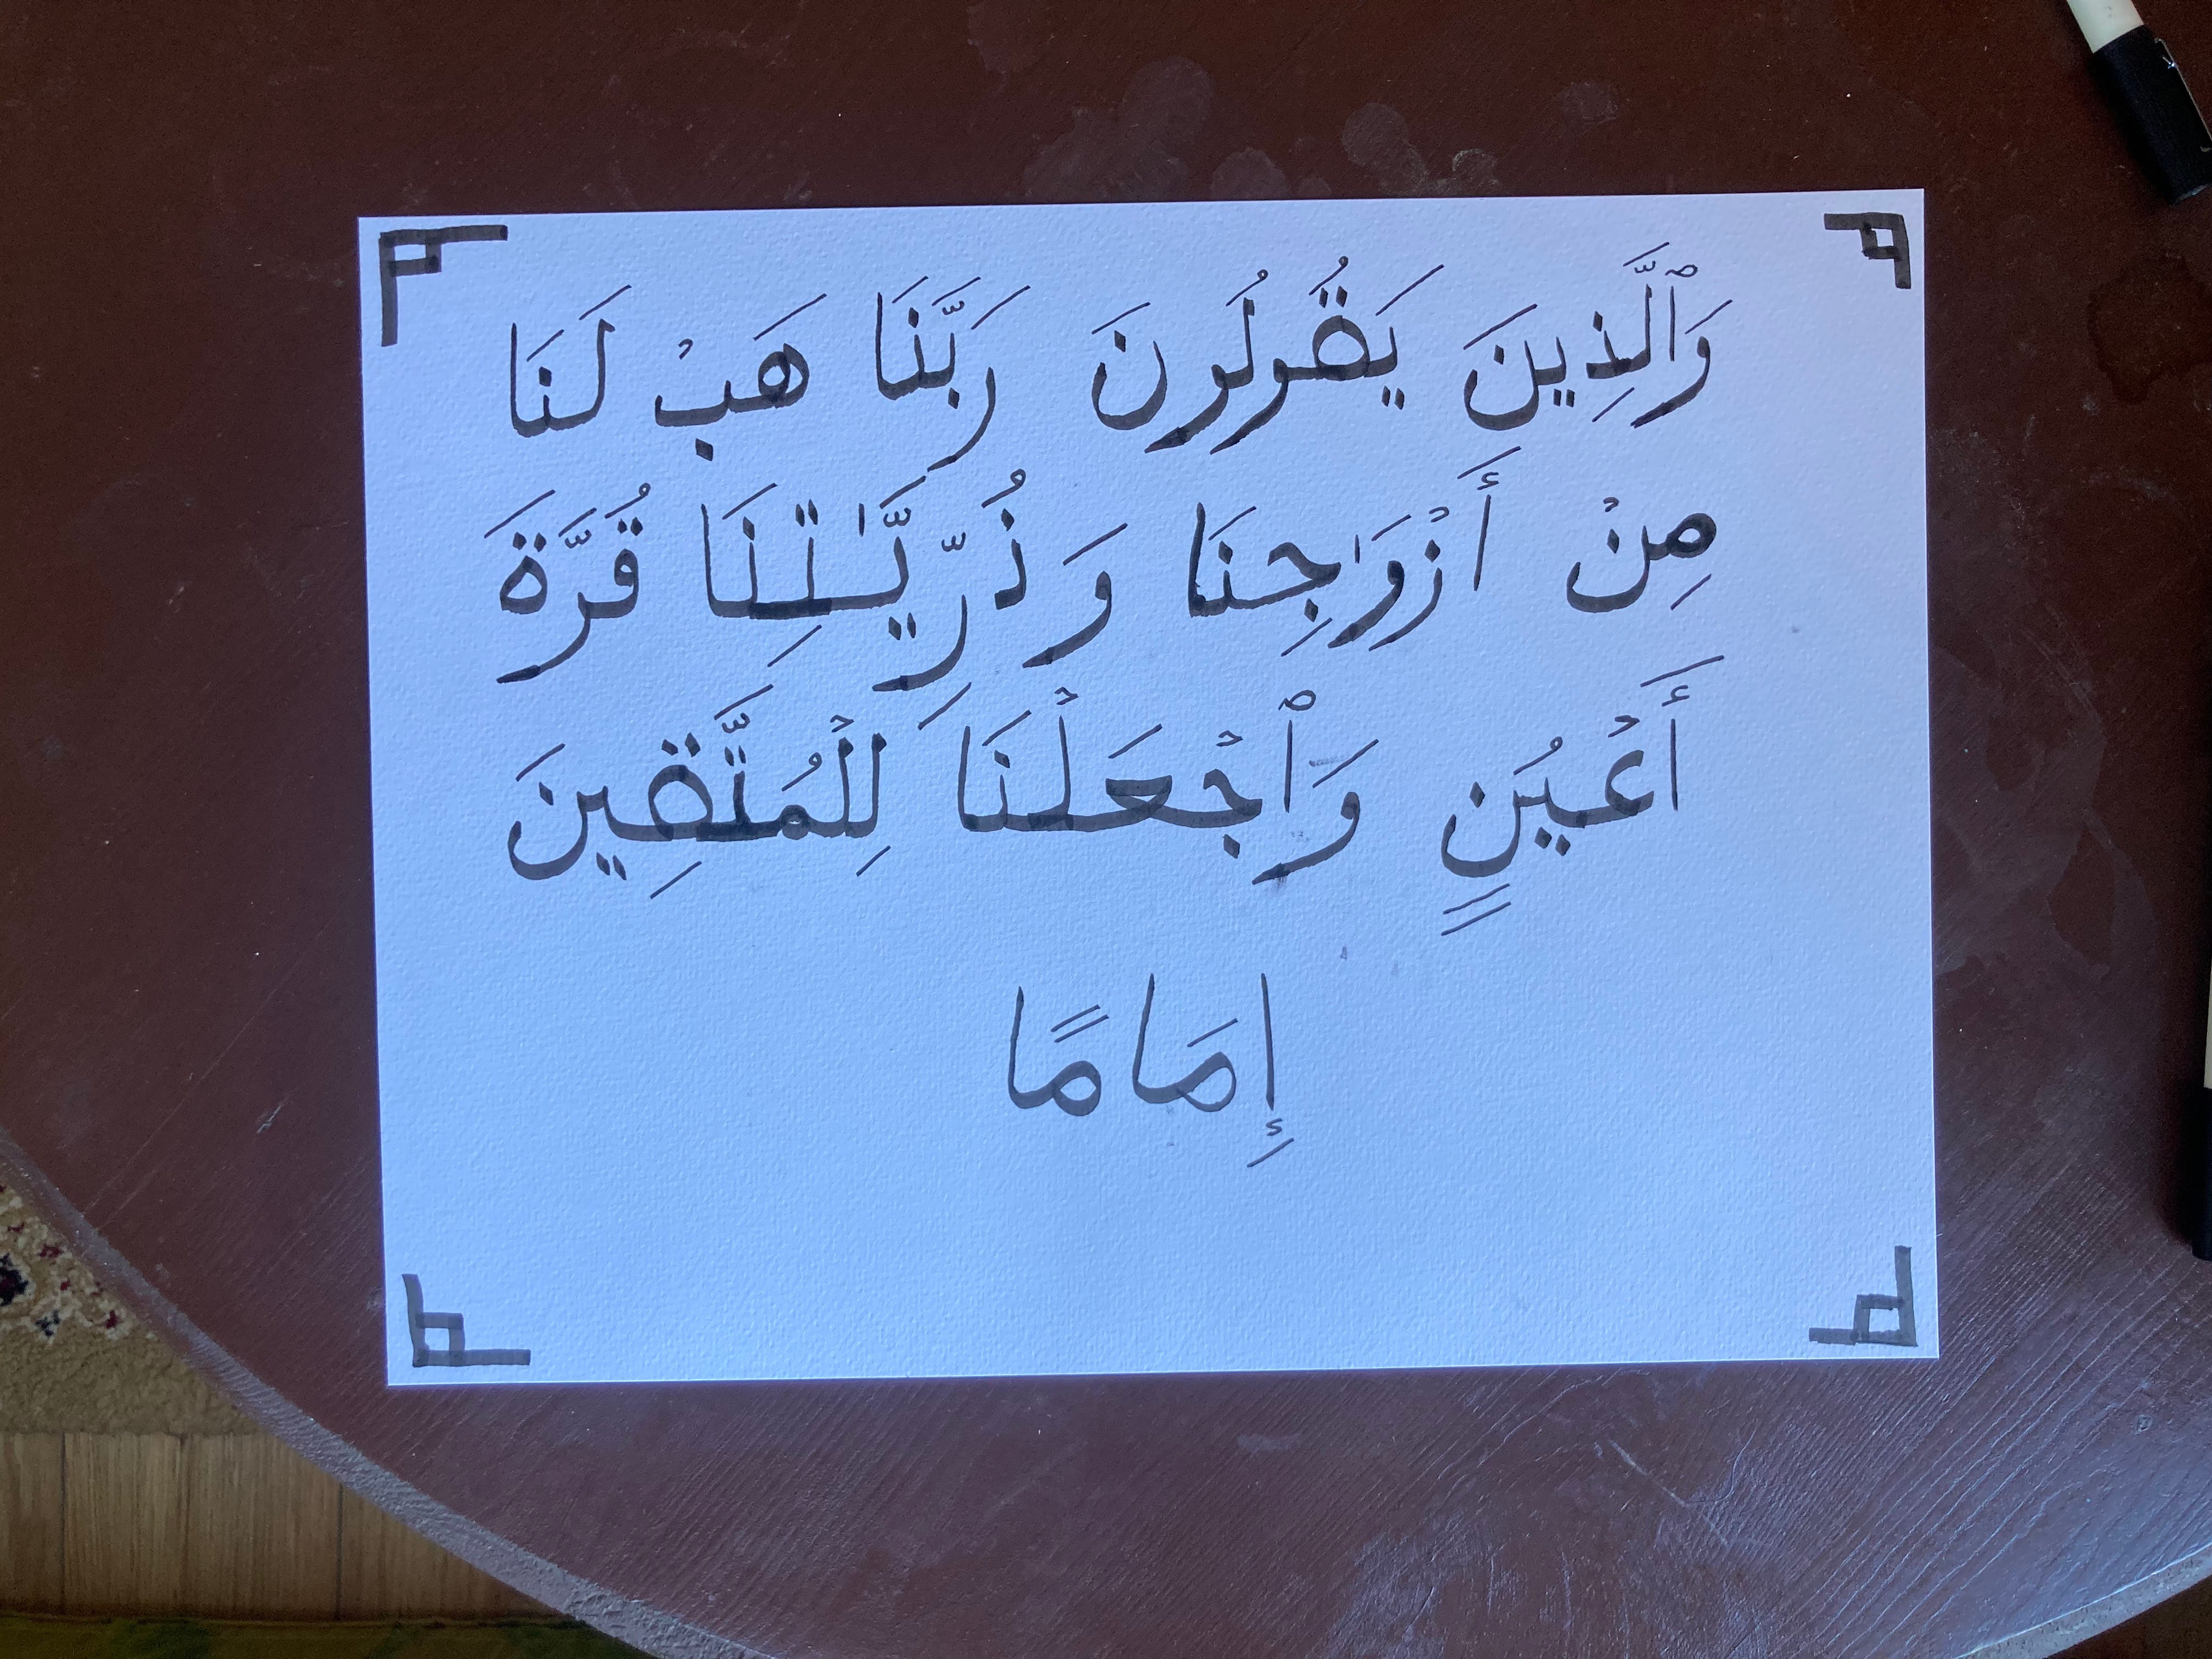 وَٱلَّذِينَ يَقُولُونَ رَبَّنَا هَبْ لَنَا
مِنْ أَزْوَٰجِنَا وَذُرِّيَّـٰتِنَا قُرَّةَ
أَعْيُنٍ وَٱجْعَلْنَا لِلْمُتَّقِينَ
إِمَامًا